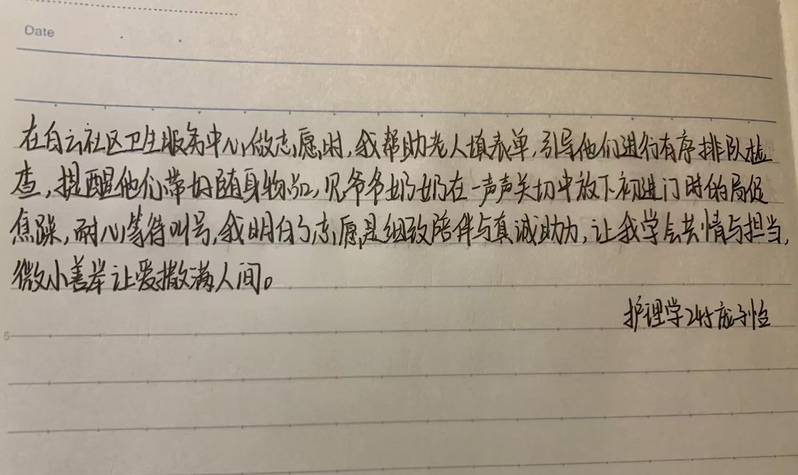 Date
在白云社区卫生服务中心做志愿时,我帮助老人填表单,引导他们进行有序排队检
查,提醒他们带好随身物品,见爷爷奶奶在一声声关切中放下初进门时的局促
焦躁,耐心等待叫号,我明白了志愿是细致陪伴与真诚助力,让我学会共情与担当,
微小善举让爱撒满人间。
护理学245庞子怡
5